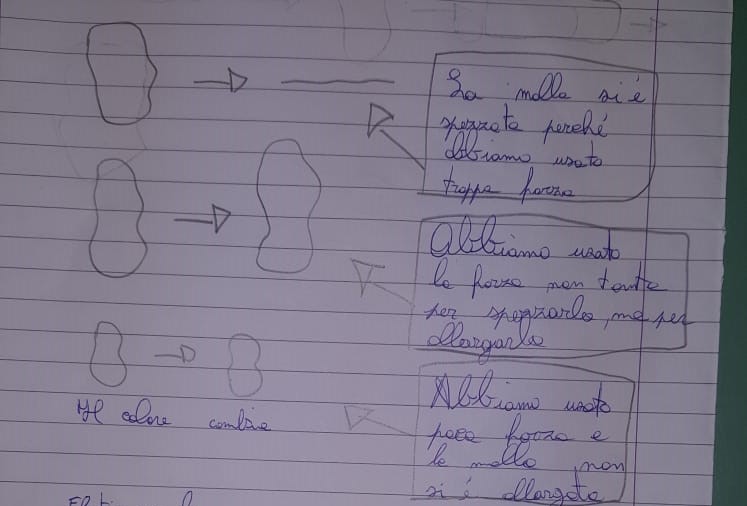 La molla si è
spezzata perché
abbiamo usato
troppa forza
Abbiamo usato
la forza non tanta
per spezzarla, ma per
allargarla
Abbiamo usato
poca forza e
la molla non
si è allargata
Il colore cambia